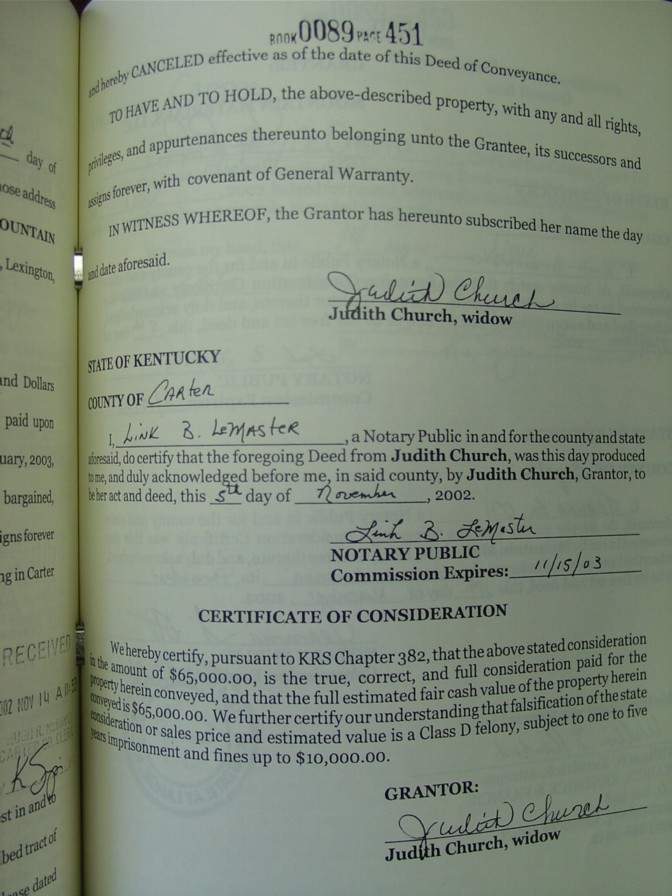 BOOK 0089 PAGE 451
and hereby CANCELED effective as of the date of this Deed of Conveyance.
TO HAVE AND TO HOLD, the above-described property, with any and all rights,
privileges, and appurtenances thereunto belonging unto the Grantee, its successors and
assigns forever, with covenant of General Warranty.
IN WITNESS WHEREOF, the Grantor has hereunto subscribed her name the day
and date aforesaid.
Judith Church
Judith Church, widow
STATE OF KENTUCKY
COUNTY OF Carter
I, Link B. LeMaster, a Notary Public in and for the county and state
aforesaid, do certify that the foregoing Deed from Judith Church, was this day produced
to me, and duly acknowledged before me, in said county, by Judith Church, Grantor, to
be her act and deed, this 5th day of November, 2002.
Link B. LeMaster
NOTARY PUBLIC
Commission Expires: 11/15/03
CERTIFICATE OF CONSIDERATION
We hereby certify, pursuant to KRS Chapter 382, that the above stated consideration
in the amount of $65,000.00, is the true, correct, and full consideration paid for the
property herein conveyed, and that the full estimated fair cash value of the property herein
conveyed is $65,000.00. We further certify our understanding that falsification of the state
consideration or sales price and estimated value is a Class D felony, subject to one to five
years imprisonment and fines up to $10,000.00.
GRANTOR:
Judith Church
Judith Church, widow
day of
ose address
OUNTAIN
, Lexington,
and Dollars
paid upon
uary, 2003,
bargained,
igns forever
ng in Carter
RECEIVED
02 NOV 14 A
st in and to
bed tract of
ase dated